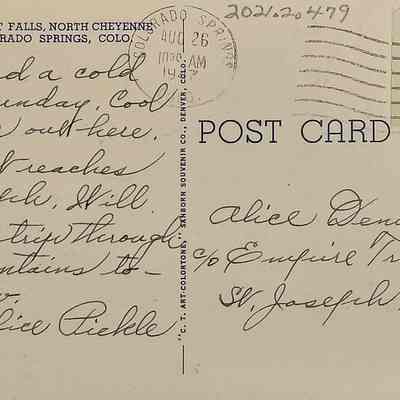 2021.20.479
T FALLS, NORTH CHEYENNE
RADO SPRINGS, COLO.
COLORADO SPRINGS
AUG 26
AM
POST CARD
d a cold
unday. Cool
out here.
reaches
Will
trip through
ntains to-
lice Pickle
"C. T. ART-COLORTONE" SANBORN SOUVENIR CO., DENVER, COLO.
Alice Den
c/o Empire Tr
St. Joseph,